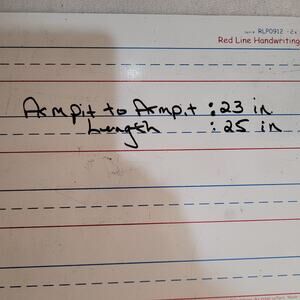 RLP0912
Red Line Handwriting
Armpit to Armpit : 23 in
Length : 25 in